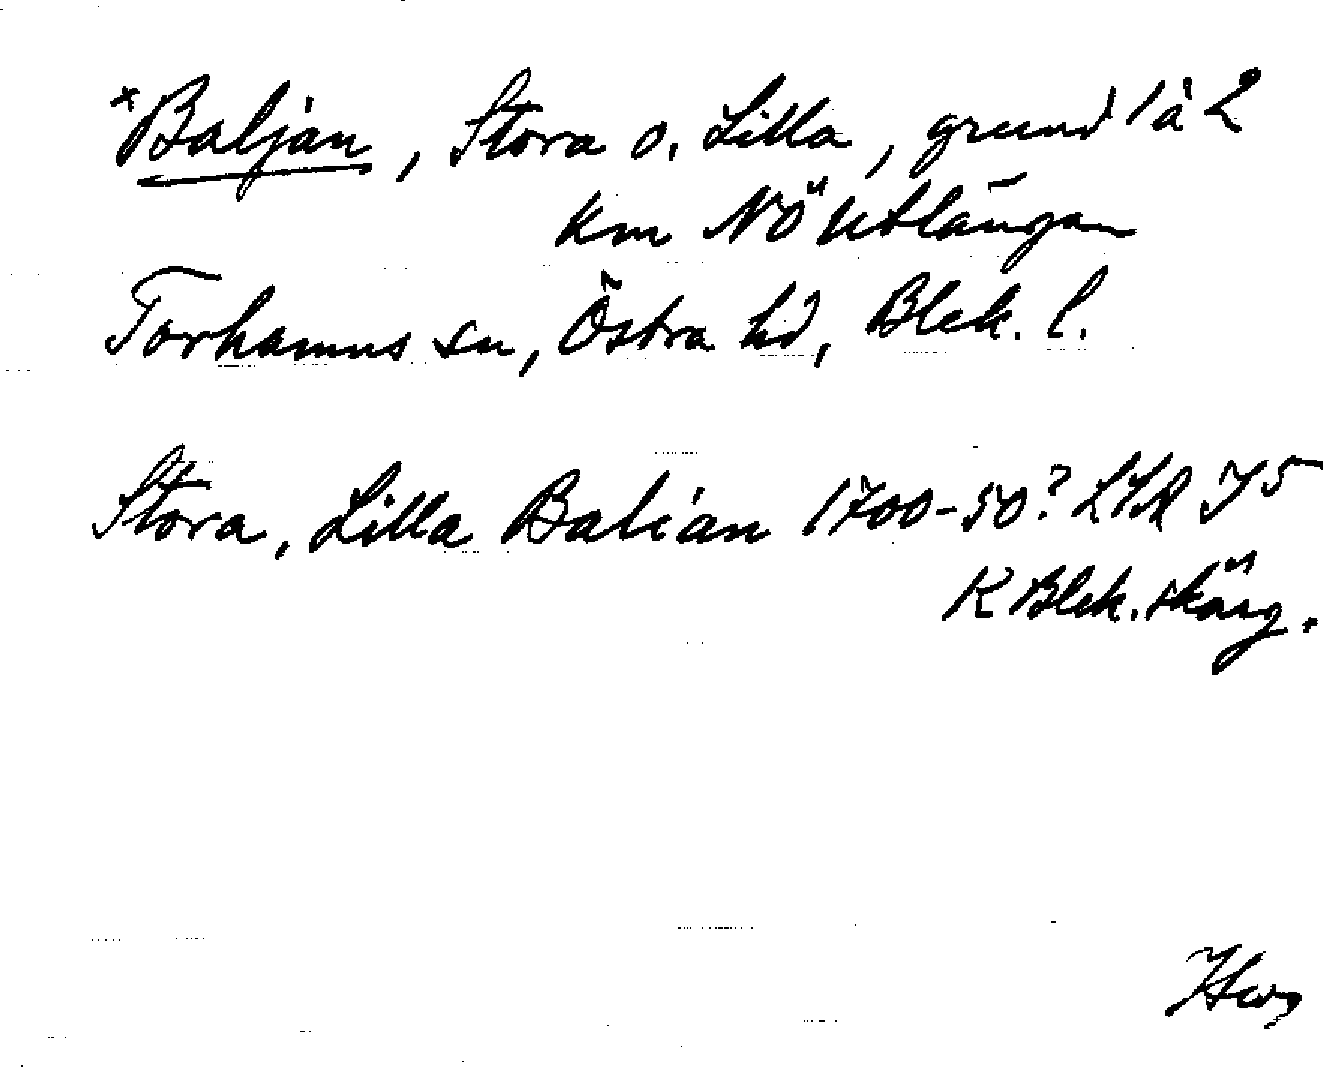 *Baljan, Stora o. Lilla, grund 1 à 2
km NÖ Utlängan
Torhamns sn, Östra hd, Blek. l.
Stora, Lilla Balian 1700-50? LSA
K Blek. skärg.